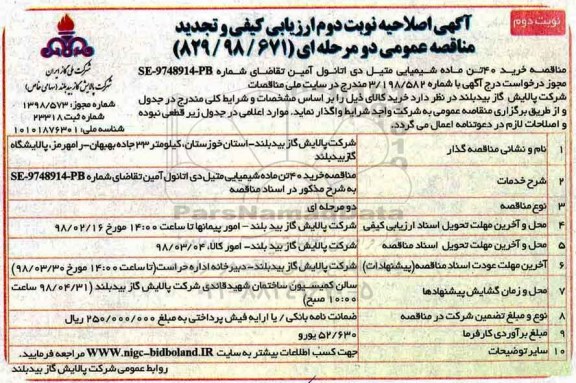 نوبت دوم
آگهی اصلاحیه نوبت دوم ارزیابی کیفی و تجدید
مناقصه عمومی دو مرحله ای (۸۲۹/۹۸/۶۷۱)
شرکت ملی گاز ایران
شرکت پالایش گاز بیدبلند (سهامی خاص)
شماره مجوز: ۱۳۹۸/۵۷۳
شماره ثبت ۲۳۳۱۸
شناسه ملی: ۱۰۱۰۱۸۷۶۳۰۱
مناقصه خرید ۴۰تن ماده شیمیایی متیل دی اتانول آمین تقاضای شماره SE-9748914-PB
مجوز درخواست درج آگهی با شماره ۳/۱۹۸/۵۸۲ مندرج در سایت ملی مناقصات
شرکت پالایش گاز بیدبلند در نظر دارد خرید کالای ذیل را بر اساس مشخصات و شرایط کلی مندرج در جدول
و از طریق برگزاری مناقصه عمومی به شرکت واجد شرایط واگذار نماید. موارد اعلامی در جدول زیر قطعی نبوده
و اصلاحات لازم در دعوتنامه اعمال می گردد.
۱ نام و نشانی مناقصه گذار شرکت پالایش گاز بیدبلند-استان خوزستان، کیلومتر ۳۳جاده بهبهان-رامهرمز، پالایشگاه
گاز بیدبلند
۲ شرح خدمات مناقصه خرید ۴۰تن ماده شیمیایی متیل دی اتانول آمین تقاضای شماره SE-9748914-PB
به شرح مذکور در اسناد مناقصه
۳ نوع مناقصه دو مرحله ای
۴ محل و آخرین مهلت تحویل اسناد ارزیابی کیفی شرکت پالایش گاز بید بلند – امور پیمانها تا ساعت ۱۴:۰۰ مورخ ۹۸/۰۲/۱۶
۵ محل و آخرین مهلت تحویل اسناد مناقصه شرکت پالایش گاز بید بلند- امور کالا، ۹۸/۰۳/۰۴
۶ آخرین مهلت عودت اسناد مناقصه(پیشنهادات) شرکت پالایش گاز بیدبلند-دبیرخانه اداره حراست(تا ساعت ۱۴:۰۰ مورخ ۹۸/۰۳/۳۰)
۷ محل و زمان گشایش پیشنهادها سالن کمیسیون ساختمان شهیدقائدی شرکت پالایش گاز بیدبلند (۹۸/۰۴/۳۱ ساعت
۱۰:۰۰ صبح)
۸ نوع و مبلغ تضمین شرکت در مناقصه ضمانت نامه بانکی / یا ارایه فیش پرداختی به مبلغ ۲۵۰/۰۰۰/۰۰۰ ریال
۹ مبلغ برآوردی کارفرما ۵۲/۶۳۰ یورو
۱۰ سایر توضیحات جهت کسب اطلاعات بیشتر به سایت WWW.nigc-bidboland.IR مراجعه فرمایید.
روابط عمومی شرکت پالایش گاز بیدبلند